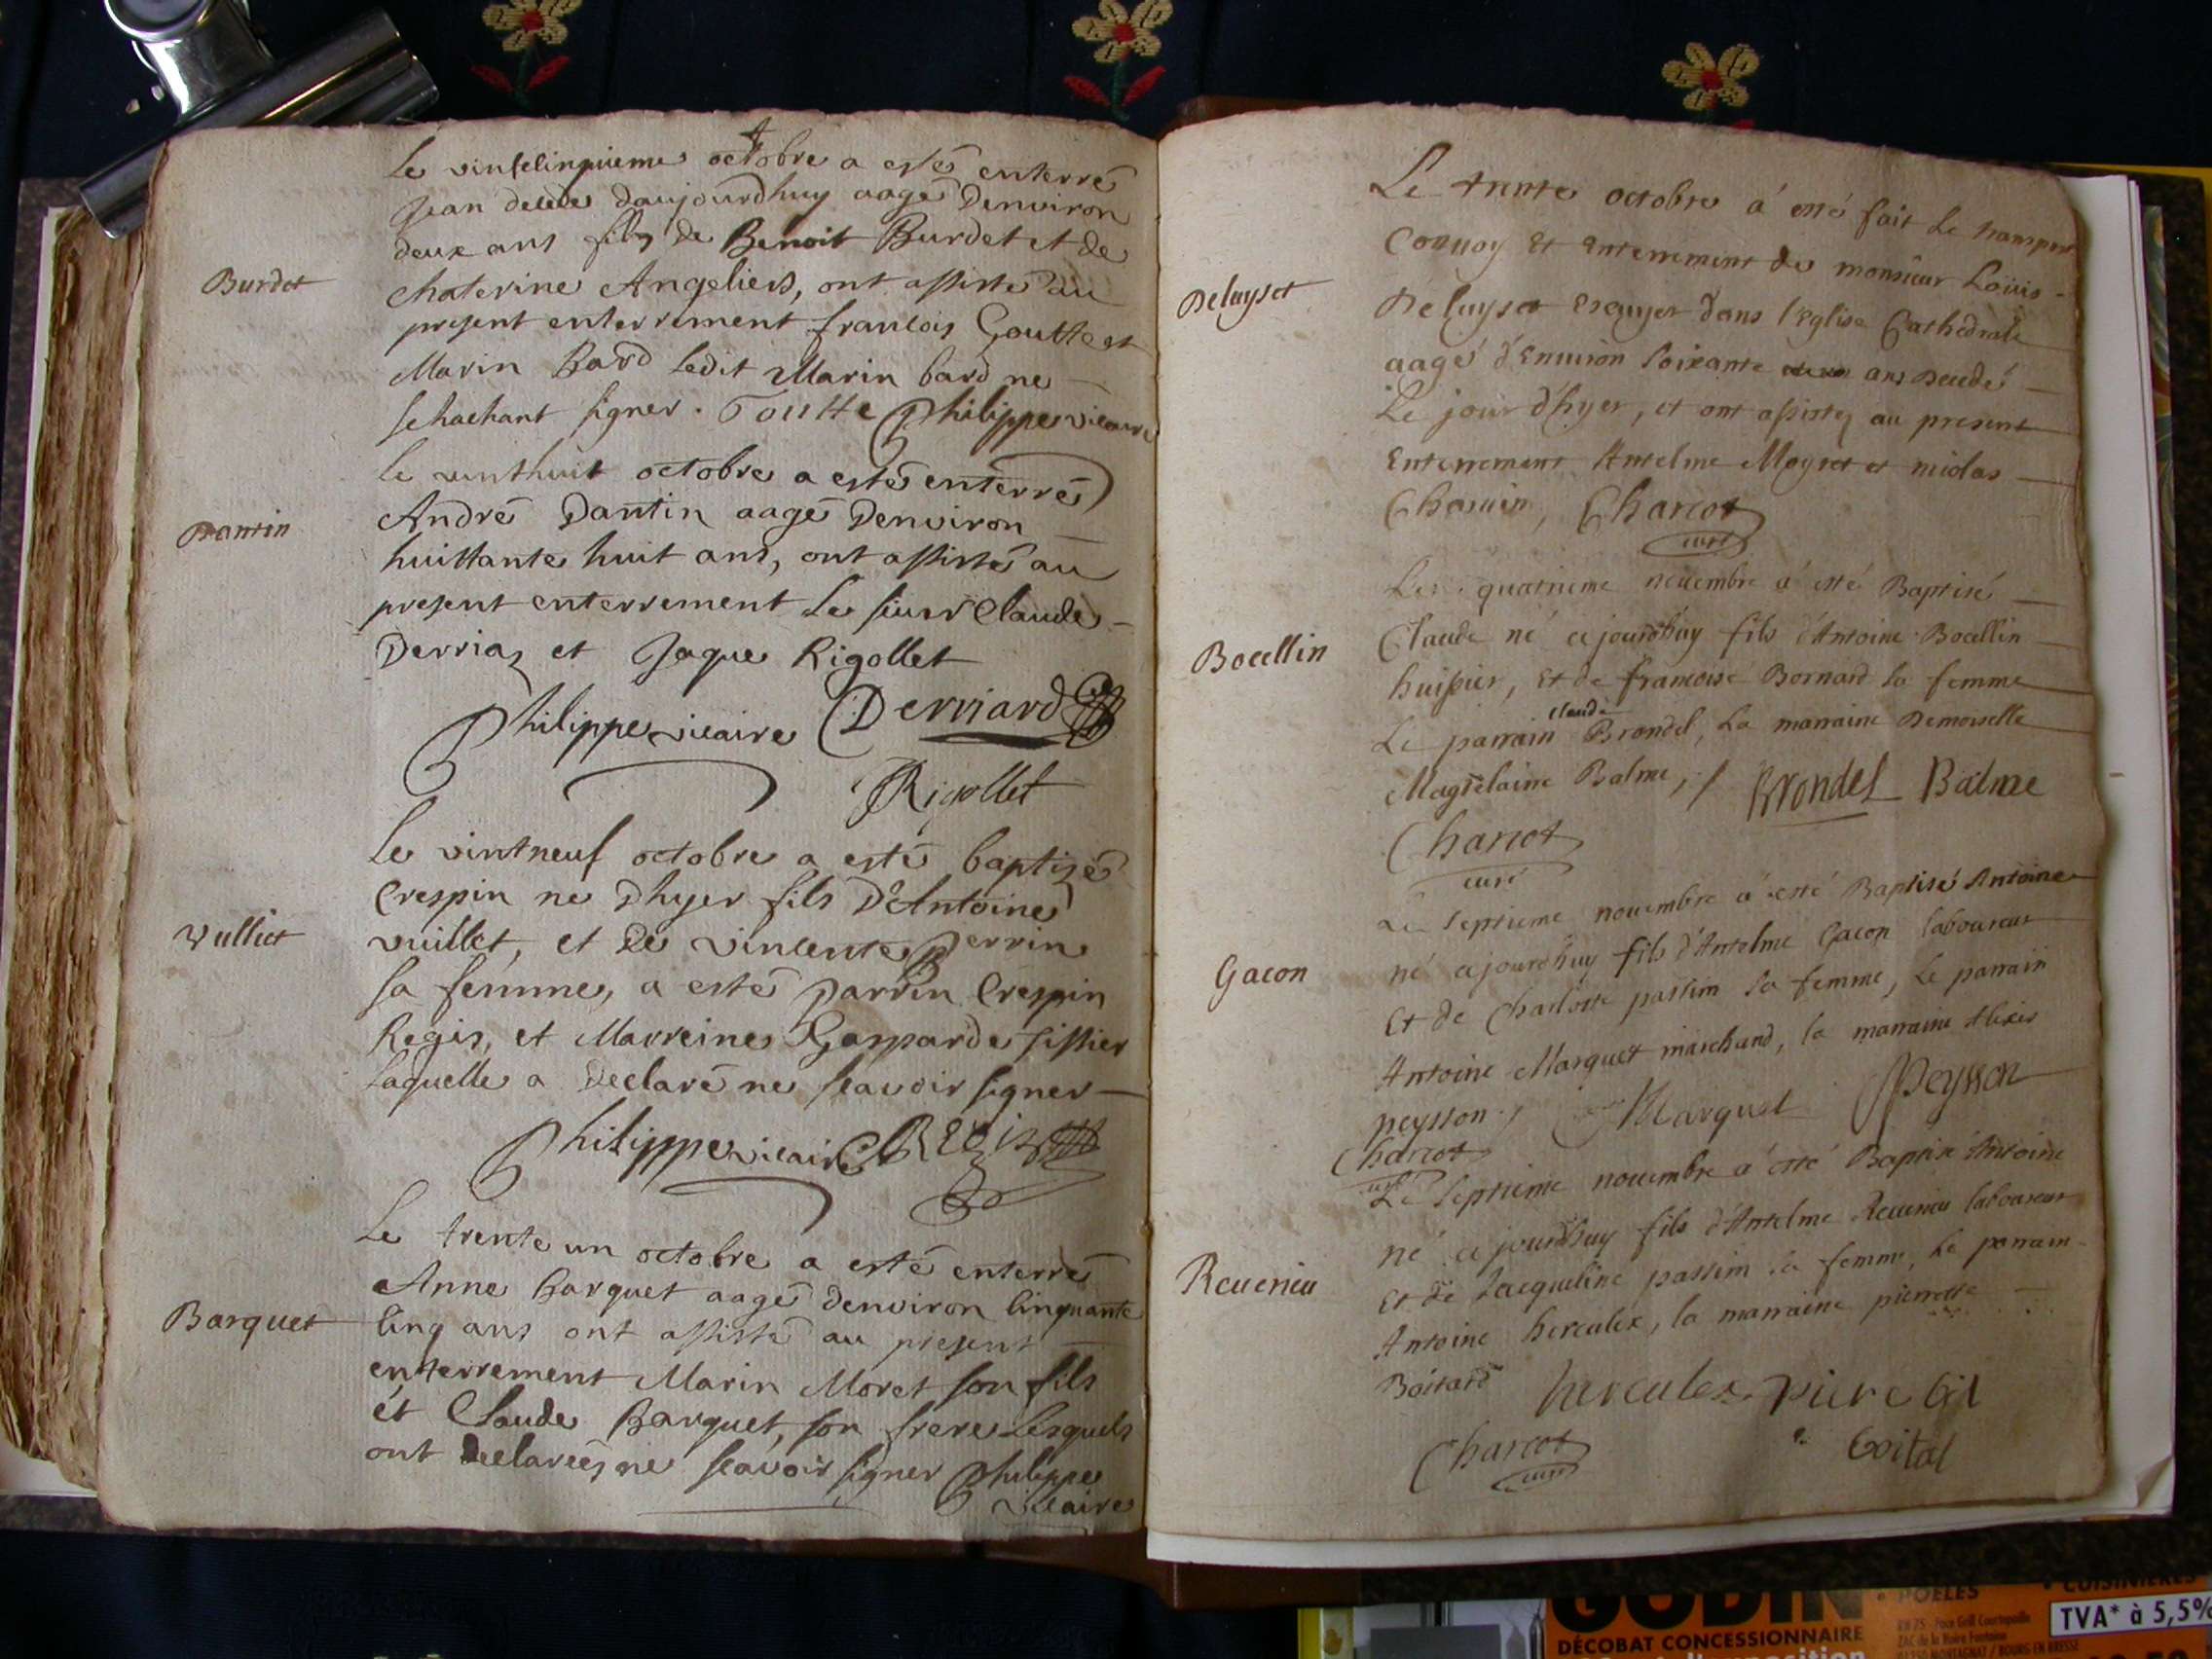 Le vintcinquieme octobre a esté enterré
Jean decedé daujourdhuy aagé Denviron
deux ans fils de Benoit Burdet et de
Burdet
Chaterine Angeliers, ont assisté au
present enterrement francois Goutte et
Marin Bard ledit Marin bard ne
schachant signer. Goutte Philippe vicaire
le vinthuit octobre a esté enterré
Dantin
André Dantin aagé Denviron
huittante huit ans, ont assisté au
present enterrement Le sieur Claude
Derriaz et Jaque Rigollet
Philippe vicaire Derriard
Rigollet
Le vintneuf octobre a esté baptizé
Crespin né Dhyer fils D'Antoine
Vulliet
vuillet, et De vincente Perrin
sa femme, a esté parrin Crespin
Regis, et Marreine Gasparde fissier
laquelle a Declaré ne scavoir signer
Philippe vicaire C Regis
Le trente un octobre a esté enterré
Anne Barquet aagé denviron cinquante
Barquet
cinq ans ont assisté au present
enterrement Marin Moret son fils
et Claude Barquet, son frere Lesquels
ont declareés ne scavoir signer Philippe
vicaire
Le trente octobre á esté fait le transport
Conuoy Et Enterrement de monsieur Loüis
Deluyset
Deluyset Escuyer dans l'Eglise Cathedrale
aagé d'Enuiron soixante ans decedé
Le jour d'hyer, et ont assistez au present
Enterrement Antelme Moyret et nicolas
Chauin, Charcot
curé
Le quatrieme nouembre á esté Baptisé
Claude né cejourdhuy fils d'Antoine Bocellin
Bocellin
huissier, Et de francoise Bornard sa femme
claude
Le parrain Brondel, La marraine Demoiselle
Magdelaine Balme, Brondel Balme
Charcot
curé
Le septieme nouembre á esté Baptisé Antoine
né cejourdhuy fils d'Antelme Gacon laboureur
Gacon
Et de Charlotte passim sa femme, Le parrain
Antoine Marquet marchand, la marraine Alexis
peysson. Marquet Peysson
Charcot
curé
Le septieme nouembre á esté Baptisé Antoine
né cejourdhuy fils d'Antelme Reuerieu laboureur
Reuerieu
Et de Jacqueline passim sa femme, Le parrain
Antoine herculex, la marraine pierrette
Boitard herculex piere
Charcot Goital
curé
GODIN
DÉCOBAT CONCESSIONNAIRE
POÊLES
CUISINIÈRES
TVA* à 5,5%